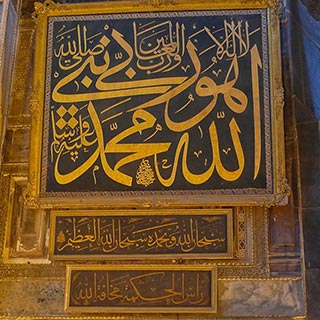 الله ربي لا اله الا هو ورب العالمين
محمد نبيي صلى الله عليه وسلم
سبحان الله وبحمده سبحان الله العظيم
رأس الحكمة مخافة الله